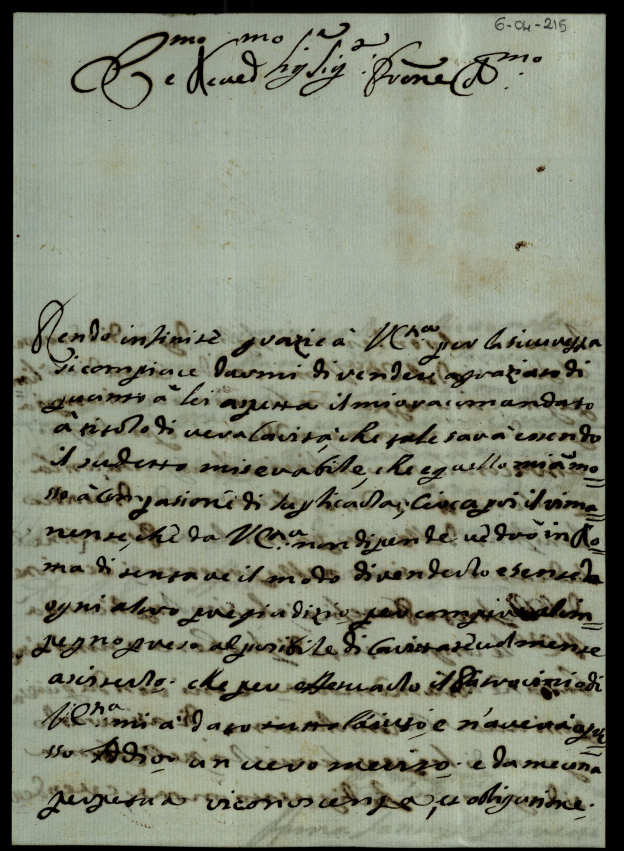 6-04-215
Ill.mo e Rev.mo Sig.r Sig.r Prone Col.mo
Rendo infinite grazie à V.S. Ill.ma per la sicurezza
si compiace darmi di rendere agraziato di
quanto à lei aspetta il mio racomandato
à titolo di vera Carità, che tale sarà essendo
il sudetto miserabile, che e quello mi à mo=
sso à compasione di suplicarla, Circa poi il rima=
nente, che da V.S. Ill.ma non dipende vedrò in Ro=
ma di tentare il modo di renderlo esente da
ogni altro pregiudizio per compire al im=
pegno preso al posibile di Caritatevolmente
asisterlo. che per effetuarlo il Patrocinio di
V.S. Ill.ma mi à dato tutto l'aiuto e n'averà
sso Iddio un vero merito. e da me una
perpetua riconoscenza, e obligazione.